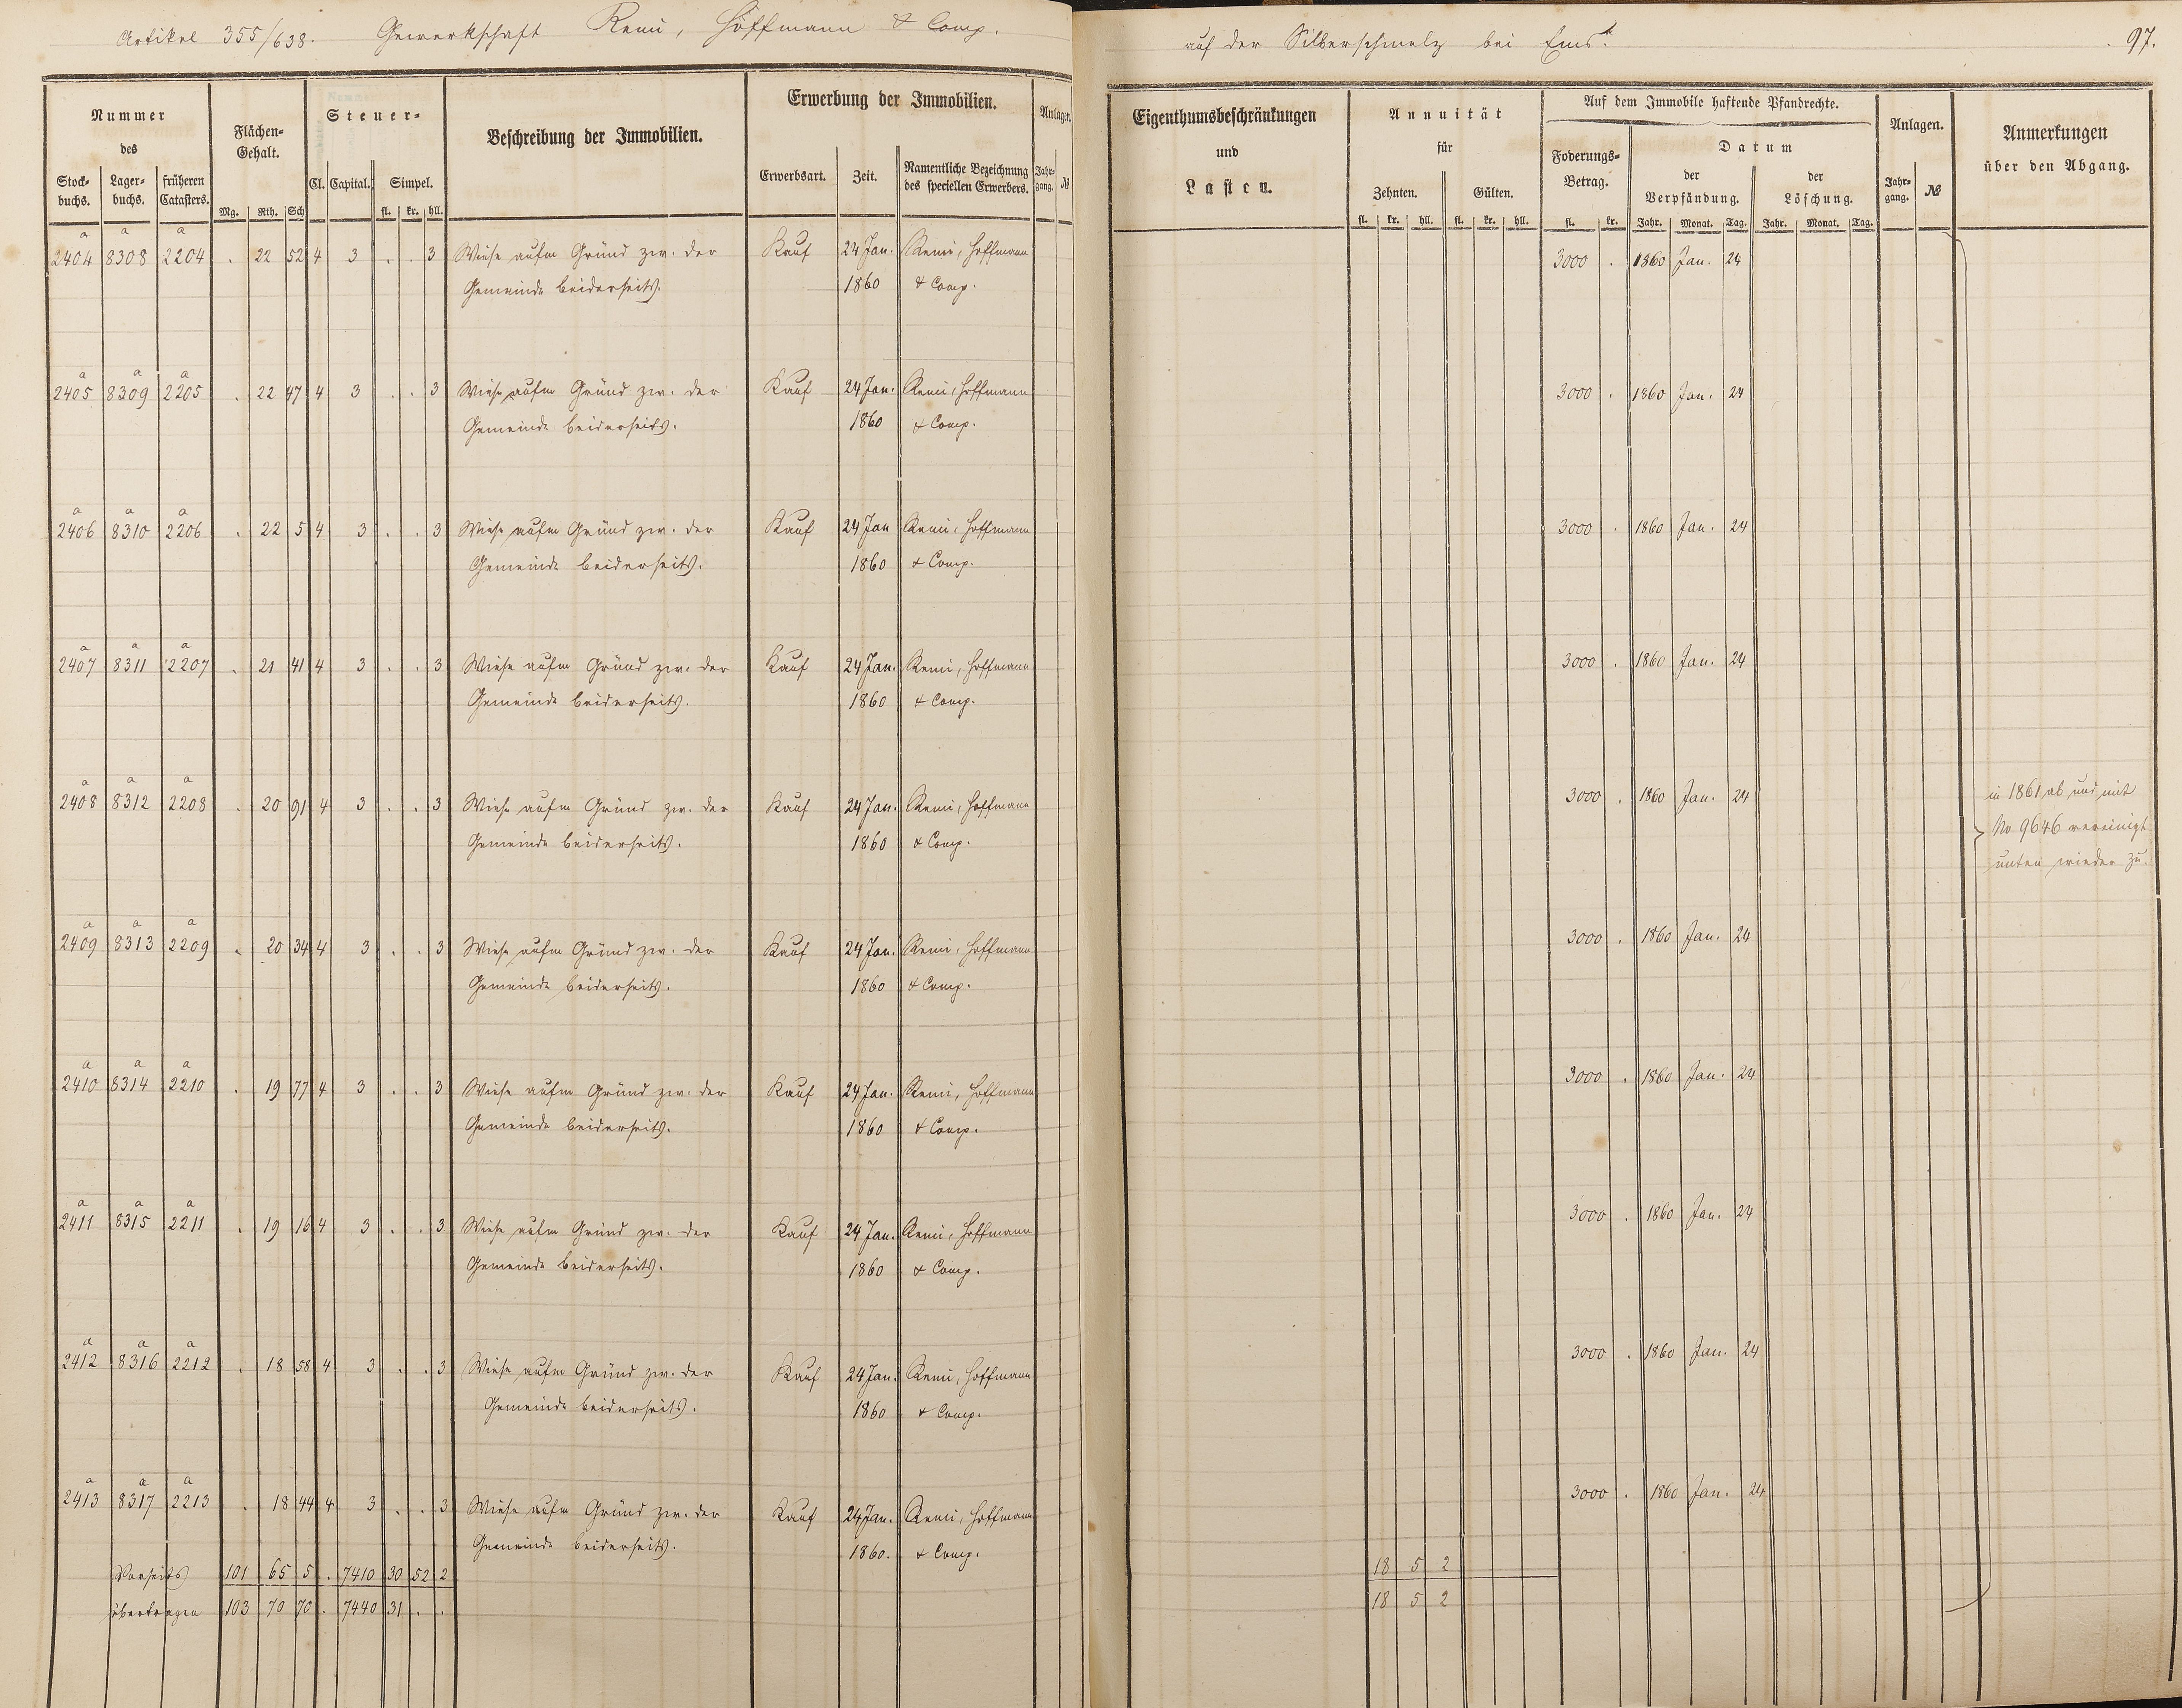 Artikel 355/638. Gewerkschaft Remi, Hoffmann & Comp. auf der Silberschmelz bei Ems. 97.
Nummer des
Stock- buchs. Lager- buchs. früheren Catasters.
Flächen- Gehalt.
Mg. Rth. Sch
Steuer-
Cl. Capital. Simpel.
fl. kr. hll.
Beschreibung der Immobilien.
Erwerbung der Immobilien.
Erwerbsart. Zeit. Namentliche Bezeichnung des speciellen Erwerbers.
Anlagen.
Jahr- gang. №
Eigenthumsbeschränkungen und Lasten.
Annuität für
Zehnten. Gülten.
fl. kr. hll. fl. kr. hll.
Auf dem Immobile haftende Pfandrechte.
Foderungs- Betrag.
fl. kr.
Datum
der Verpfändung. der Löschung.
Jahr. Monat. Tag. Jahr. Monat. Tag.
Anlagen.
Jahr- gang. №
Anmerkungen über den Abgang.
a a a
2404 8308 2204 . 22 52 4 3 . . 3 Wiese aufm Gründ zw. der Kauf 24 Jan. Remi, Hoffmann 3000 . 1860 Jan. 24
Gemeinde beiderseits. 1860 & Comp.
a a a
2405 8309 2205 . 22 47 4 3 . . 3 Wiese aufm Gründ zw. der Kauf 24 Jan. Remi, Hoffmann 3000 . 1860 Jan. 24
Gemeinde beiderseits. 1860 & Comp.
a a a
2406 8310 2206 . 22 5 4 3 . . 3 Wiese aufm Gründ zw. der Kauf 24 Jan Remi, Hoffmann 3000 . 1860 Jan. 24
Gemeinde beiderseits. 1860 & Comp.
a a a
2407 8311 2207 . 21 41 4 3 . . 3 Wiese aufm Gründ zw. der Kauf 24 Jan. Remi, Hoffmann 3000 . 1860 Jan. 24
Gemeinde beiderseits. 1860 & Comp.
a a a
2408 8312 2208 . 20 91 4 3 . . 3 Wiese aufm Gründ zw. der Kauf 24 Jan. Remi, Hoffmann 3000 . 1860 Jan. 24
Gemeinde beiderseits. 1860 & Comp.
in 1861 ab und mit
No 9646 vereinigt
unten wieder zu.
a a a
2409 8313 2209 . 20 34 4 3 . . 3 Wiese aufm Gründ zw. der Kauf 24 Jan. Remi, Hoffmann 3000 . 1860 Jan. 24
Gemeinde beiderseits. 1860 & Comp.
a a a
2410 8314 2210 . 19 77 4 3 . . 3 Wiese aufm Gründ zw. der Kauf 24 Jan. Remi, Hoffmann 3000 . 1860 Jan. 24
Gemeinde beiderseits. 1860 & Comp.
a a a
2411 8315 2211 . 19 16 4 3 . . 3 Wiese aufm Gründ zw. der Kauf 24 Jan. Remi, Hoffmann 3000 . 1860 Jan. 24
Gemeinde beiderseits. 1860 & Comp.
a a a
2412 8316 2212 . 18 58 4 3 . . 3 Wiese aufm Gründ zw. der Kauf 24 Jan. Remi, Hoffmann 3000 . 1860 Jan. 24
Gemeinde beiderseits. 1860 & Comp.
a a a
2413 8317 2213 . 18 44 4 3 . . 3 Wiese aufm Gründ zw. der Kauf 24 Jan. Remi, Hoffmann 3000 . 1860 Jan. 24
Gemeinde beiderseits. 1860. & Comp.
Vorseits 101 65 5 . 7410 30 52 2 18 5 2
übertragen 103 70 70 . 7440 31 . . 18 5 2